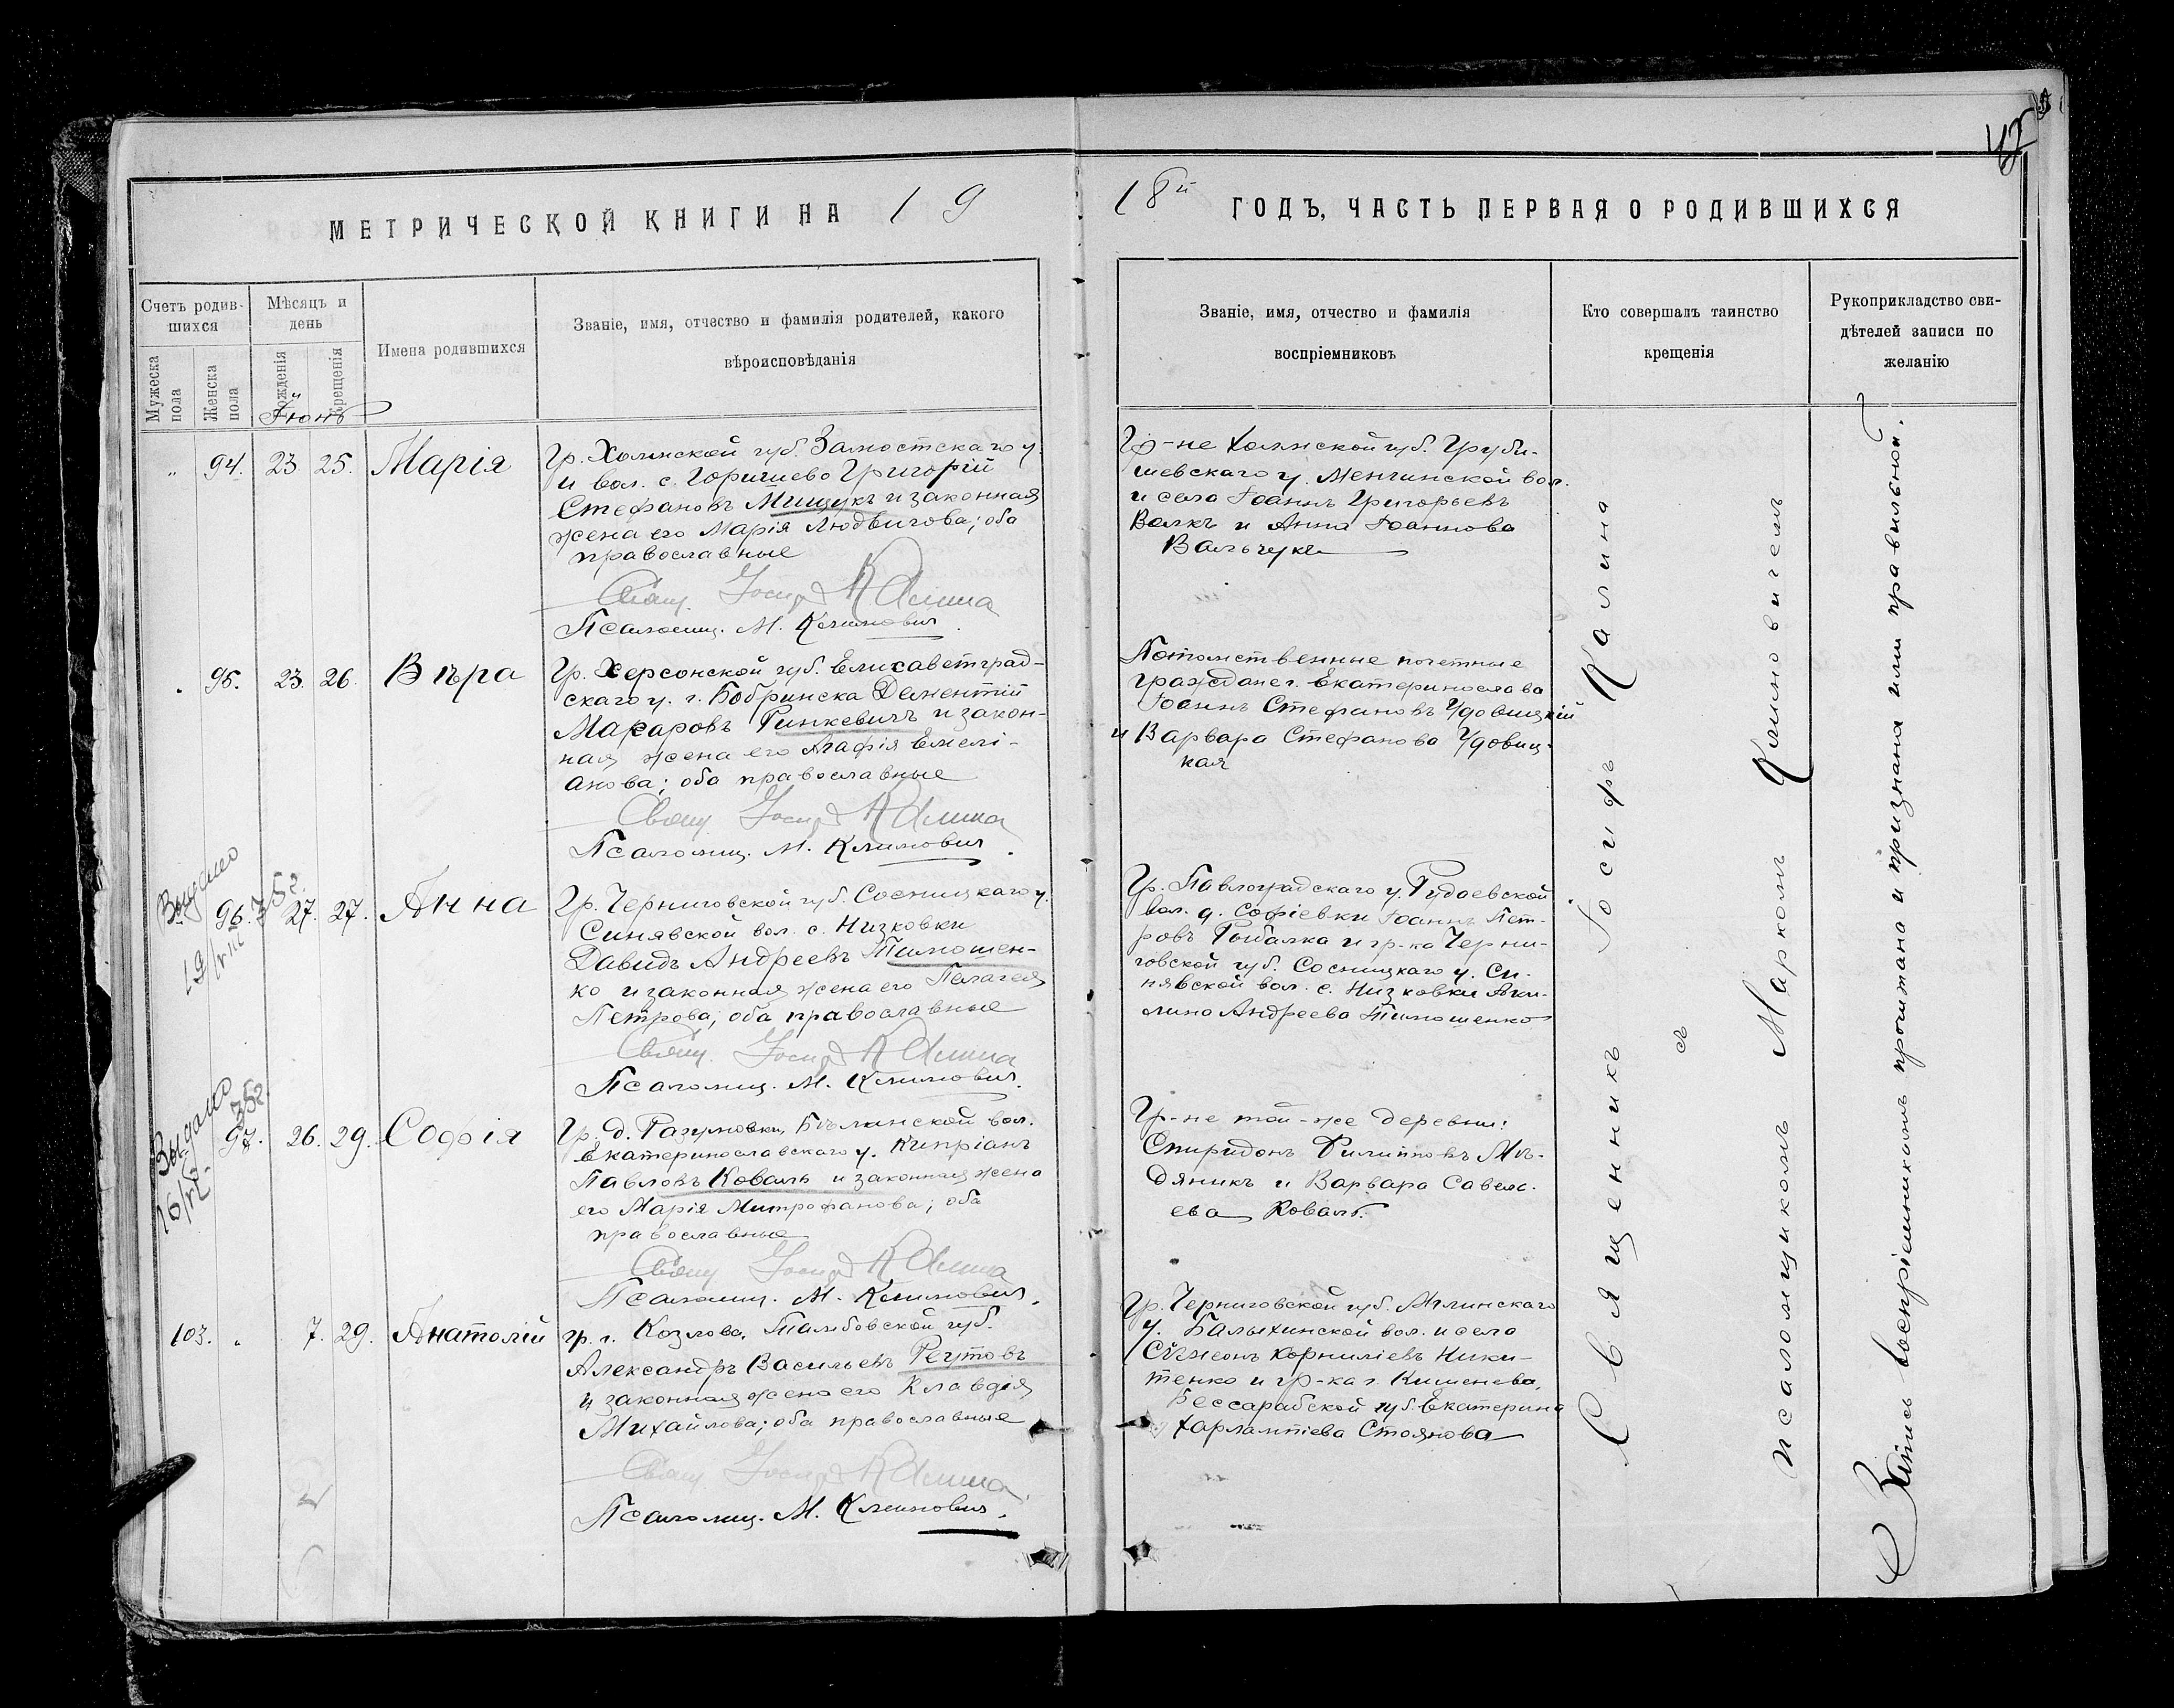 МЕТРИЧЕСКОЙ КНИГИ НА 19
18й ГОДЪ, ЧАСТЬ ПЕРВАЯ О РОДИВШИХСЯ
Счетъ родив-
шихся
Мужеска
пола
Женска
пола
Мѣсяцъ и
день
Рожденія
Крещенія
Імена родившихся
Званіе, имя, отчество и фамилія родителей, какого
вѣроисповѣданія
Званіе, имя, отчество и фамилія
воспріемниковъ
Кто совершалъ таинство
крещенія
Рукоприкладство сви-
дѣтелей записи по
желанію
Іюнь
" 94. 23 25. Марія
Гр. Холмской губ. Замостскаго у.
и вол. с. Горышево Григорій
Стефановъ Мищукъ и законная
жена его Марія Людвигова; оба
православные
Свящ. Іосиф Калина
Псаломщ. М. Климович.
Гр-не Холмской губ. Груби-
шевскаго у. Менчинской вол.
и села Іоаннъ Григорьевъ
Валкъ и Анна Іоаннова
Вальчукъ
95. 23. 26. Вѣра
Гр. Херсонской губ. Елисаветград-
скаго у. г. Бобринска Дементій
Макаровъ Гинкевичъ и закон-
ная жена его Агафія Емелі-
анова; оба православные
Свящ Іосиф Калина
Псаломщ. М. Климович.
Потомственные почетные
граждане г. Екатеринослава
Іоаннъ Стефановъ Удовицкій
и Варвара Стефанова Удовиц-
кая
Выдано
96. 27. 27. Анна
Гр. Черниговской губ. Сосницкаго у.
Синявской вол. с. Низковки
Давидъ Андреевъ Тимошен-
ко и законная жена его Пелагея
Петрова; оба православные
Свящ. Іосиф Калина
Псаломщ. М. Климович.
Гр. Павлоградскаго у.
вол. д. Софіевки Іоаннъ Пет-
ровъ Рыбалка и гр-ка Черни-
говской губ. Сосницкаго у. Си-
нявской вол. с. Низковки Аки-
лина Андреева Тимошенко
Выдано
97. 26. 29. Софія
Гр. д. Разумовки, Бѣлинской вол.
Екатеринославскаго у. Кипріанъ
Павловъ Коваль и законная жена
его Марія Митрофанова; оба
православные
Свящ Іосиф Калина
Псаломщ. М. Климович.
Гр-не той-же деревни:
Спиридонъ Филипповъ Мѣ-
дяникъ и Варвара Савель-
ева Коваль.
103. " 7. 29. Анатолій
Гр. г. Козлова, Тамбовской губ.
Александръ Васильевъ Реутовъ
и законная жена его Клавдія
Михайлова; оба православные
Свящ Іосиф Калина
Псаломщ. М. Климович.
Гр. Черниговской губ. Мглинскаго
у. Балыкинской вол. и села
Сѵмеонъ Корниліевъ Ники-
тенко и гр-ка г. Кишенева,
Бессарабской губ. Екатерина
Харлампіева Стоянова
Священникъ Іосифъ Калина
съ
псаломщикомъ Маркомъ Климовичемъ
Запись воспріемникомъ прочитана и признана ими правильной.